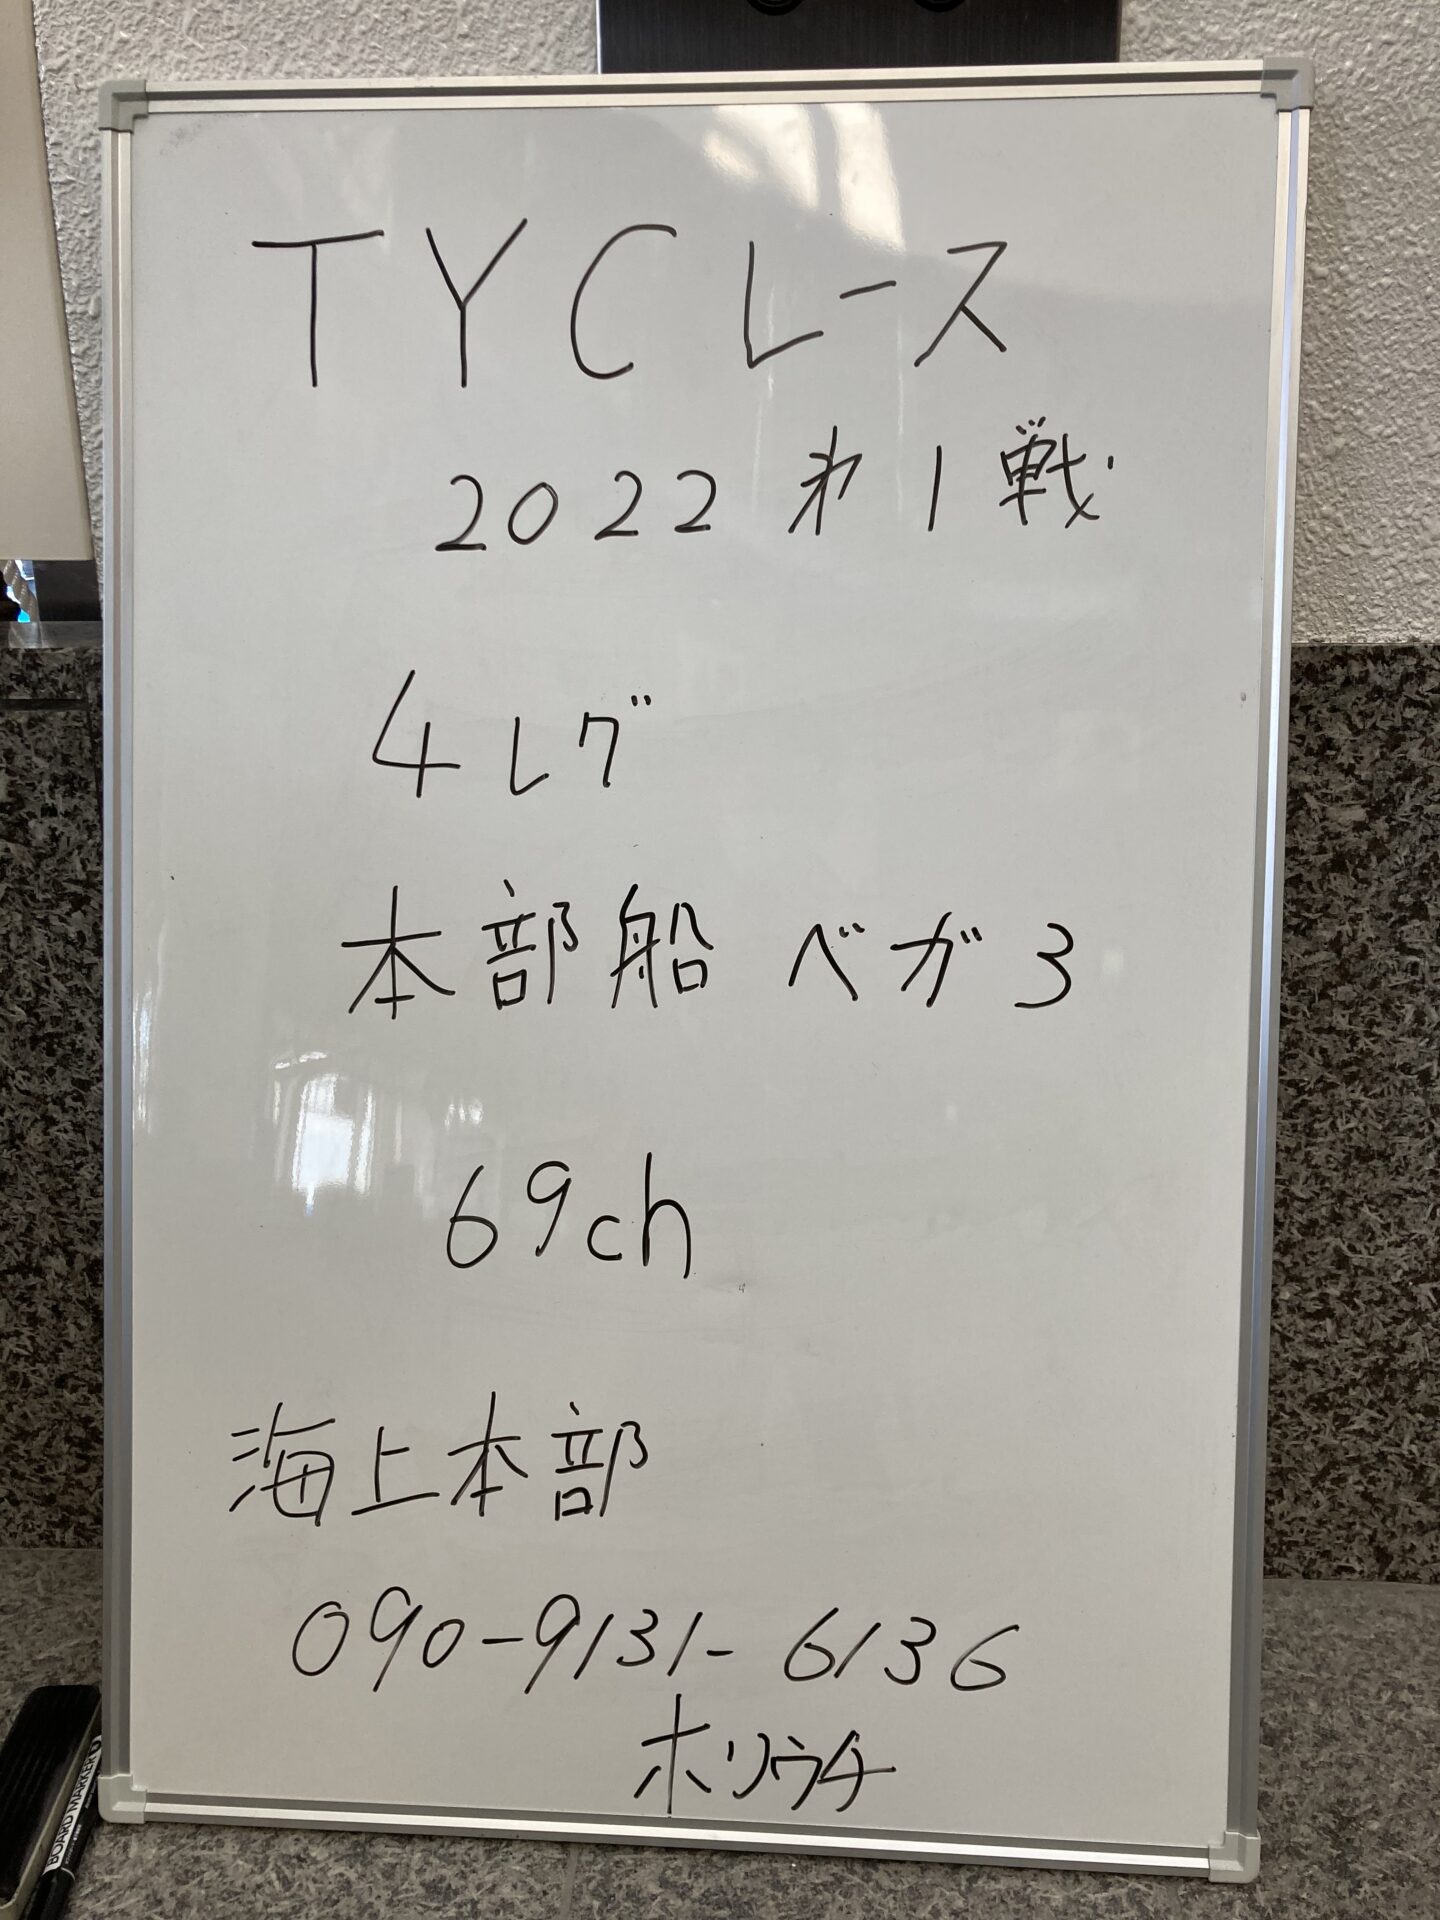 TYCレース
2022 第1戦
4レグ
本部船 ベガ3
69ch
海上本部
090-9131-6136
ホリウチ
BOARD MARKER